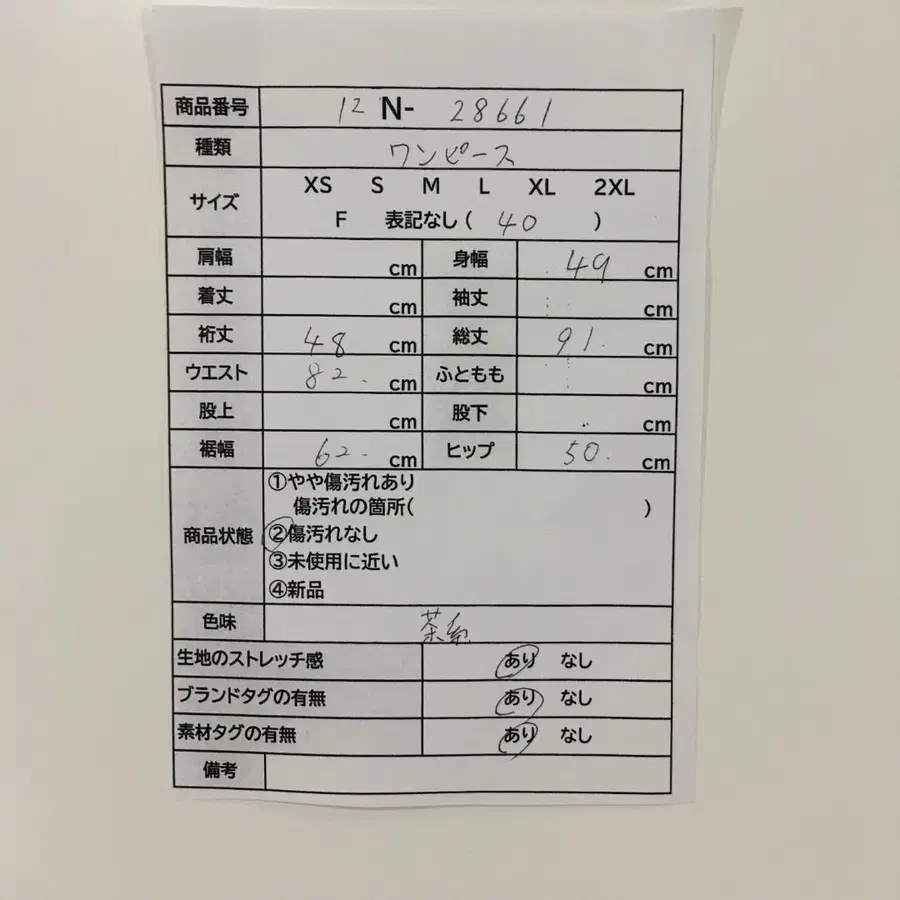 商品番号 12 N- 28661
種類 ワンピース
サイズ XS S M L XL 2XL
F 表記なし ( 40 )
肩幅 cm 身幅 49 cm
着丈 cm 袖丈 cm
裄丈 48 cm 総丈 91. cm
ウエスト 82. cm ふともも cm
股上 cm 股下 cm
裾幅 62. cm ヒップ 50. cm
商品状態 ①やや傷汚れあり
傷汚れの箇所( )
②傷汚れなし
③未使用に近い
④新品
色味 茶系
生地のストレッチ感 あり なし
ブランドタグの有無 あり なし
素材タグの有無 あり なし
備考